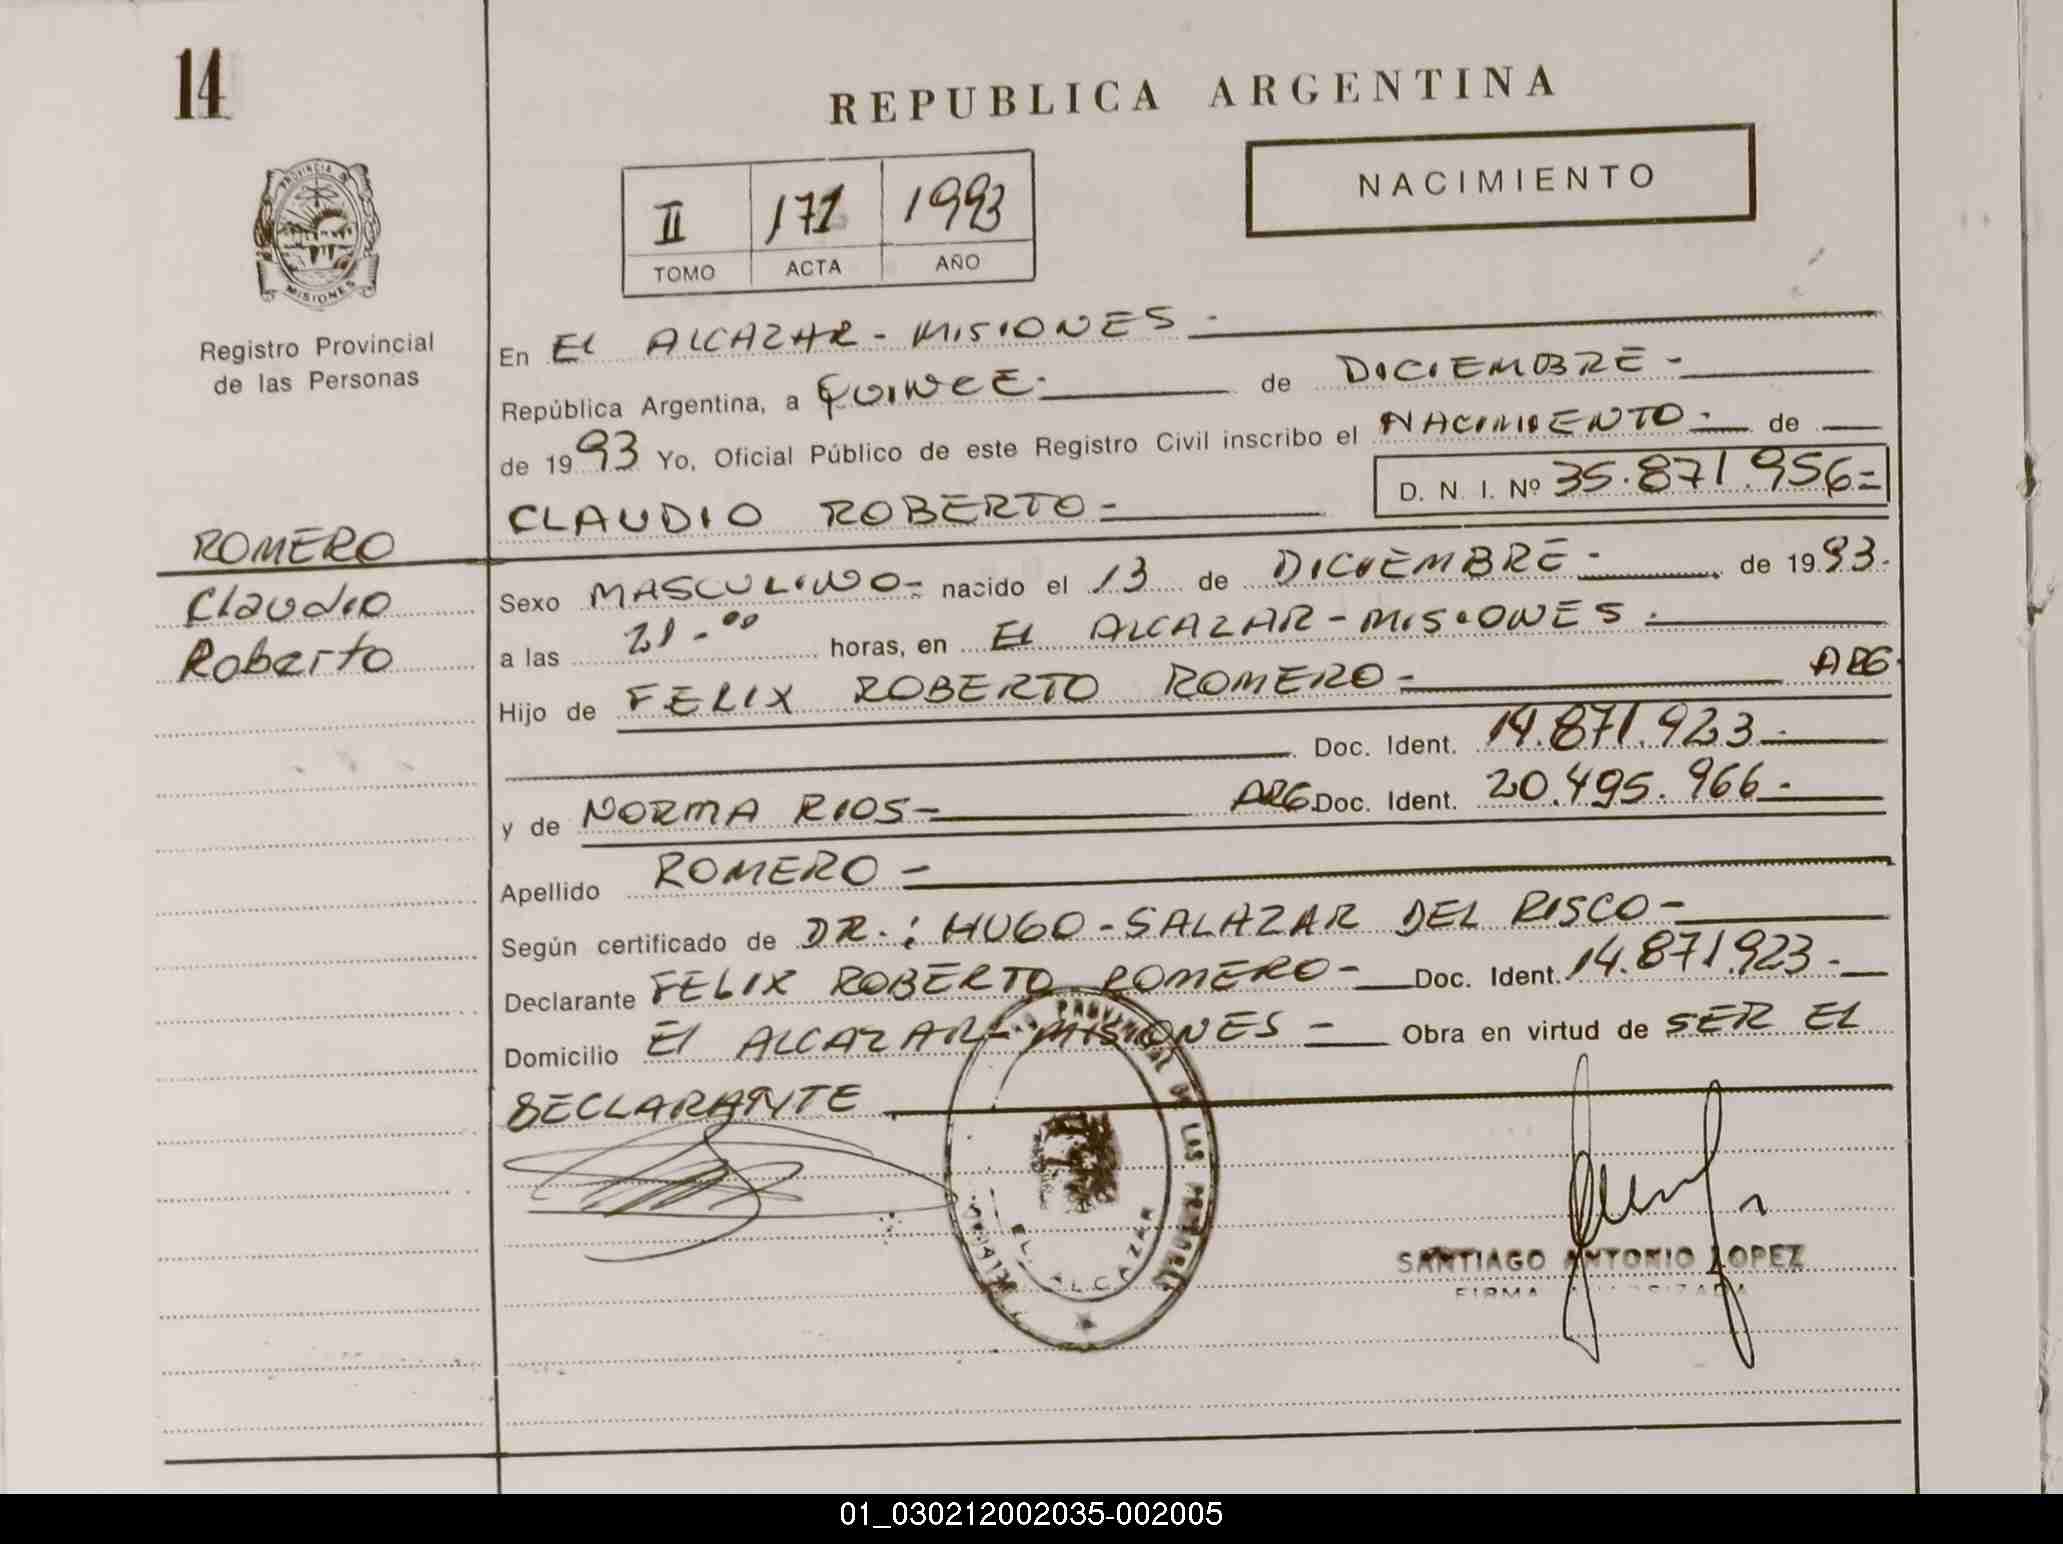 14
REPUBLICA ARGENTINA
NACIMIENTO
II 171 1993
TOMO ACTA AÑO
PROVINCIA DE
MISIONES
Registro Provincial
de las Personas
ROMERO
Claudio
Roberto
En El ALCAZAR - MISIONES -
República Argentina, a QUINCE - de DICIEMBRE -
de 1993 Yo, Oficial Público de este Registro Civil inscribo el NACIMIENTO - de
CLAUDIO ROBERTO - D. N. I. Nº 35.871.956=
Sexo MASCULINO - nacido el 13 de DICIEMBRE - de 1993.
a las 21-00 horas, en El ALCAZAR - MISIONES -
Hijo de FELIX ROBERTO ROMERO - ARG.
Doc. Ident. 14.871.923 -
y de NORMA RIOS - ARG. Doc. Ident. 20.495.966 -
Apellido ROMERO -
Según certificado de DR.: HUGO - SALAZAR DEL RISCO -
Declarante FELIX ROBERTO ROMERO - Doc. Ident. 14.871.923 -
Domicilio El ALCAZAR - MISIONES - Obra en virtud de SER EL
DECLARANTE
PROVINCIAL DE LAS PERSONAS
EL ALCAZAR
SANTIAGO ANTONIO LOPEZ
FIRMA AUTORIZADA
01_030212002035-002005